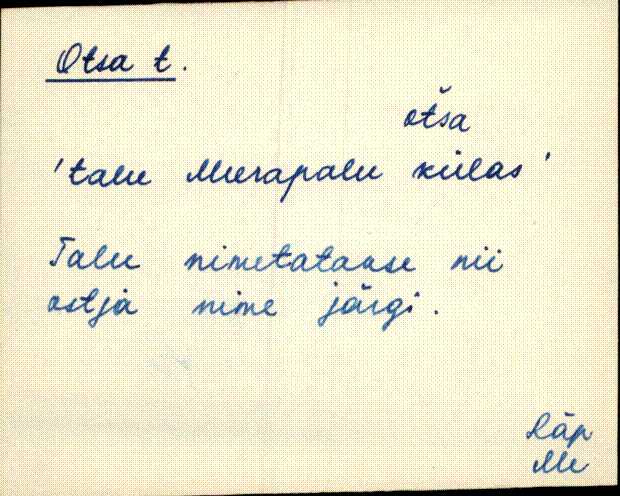 Otsa t.
otša
'talu Murapalu külas'
Talu nimetatakse nii
ostja nime järgi.
Räp
Me